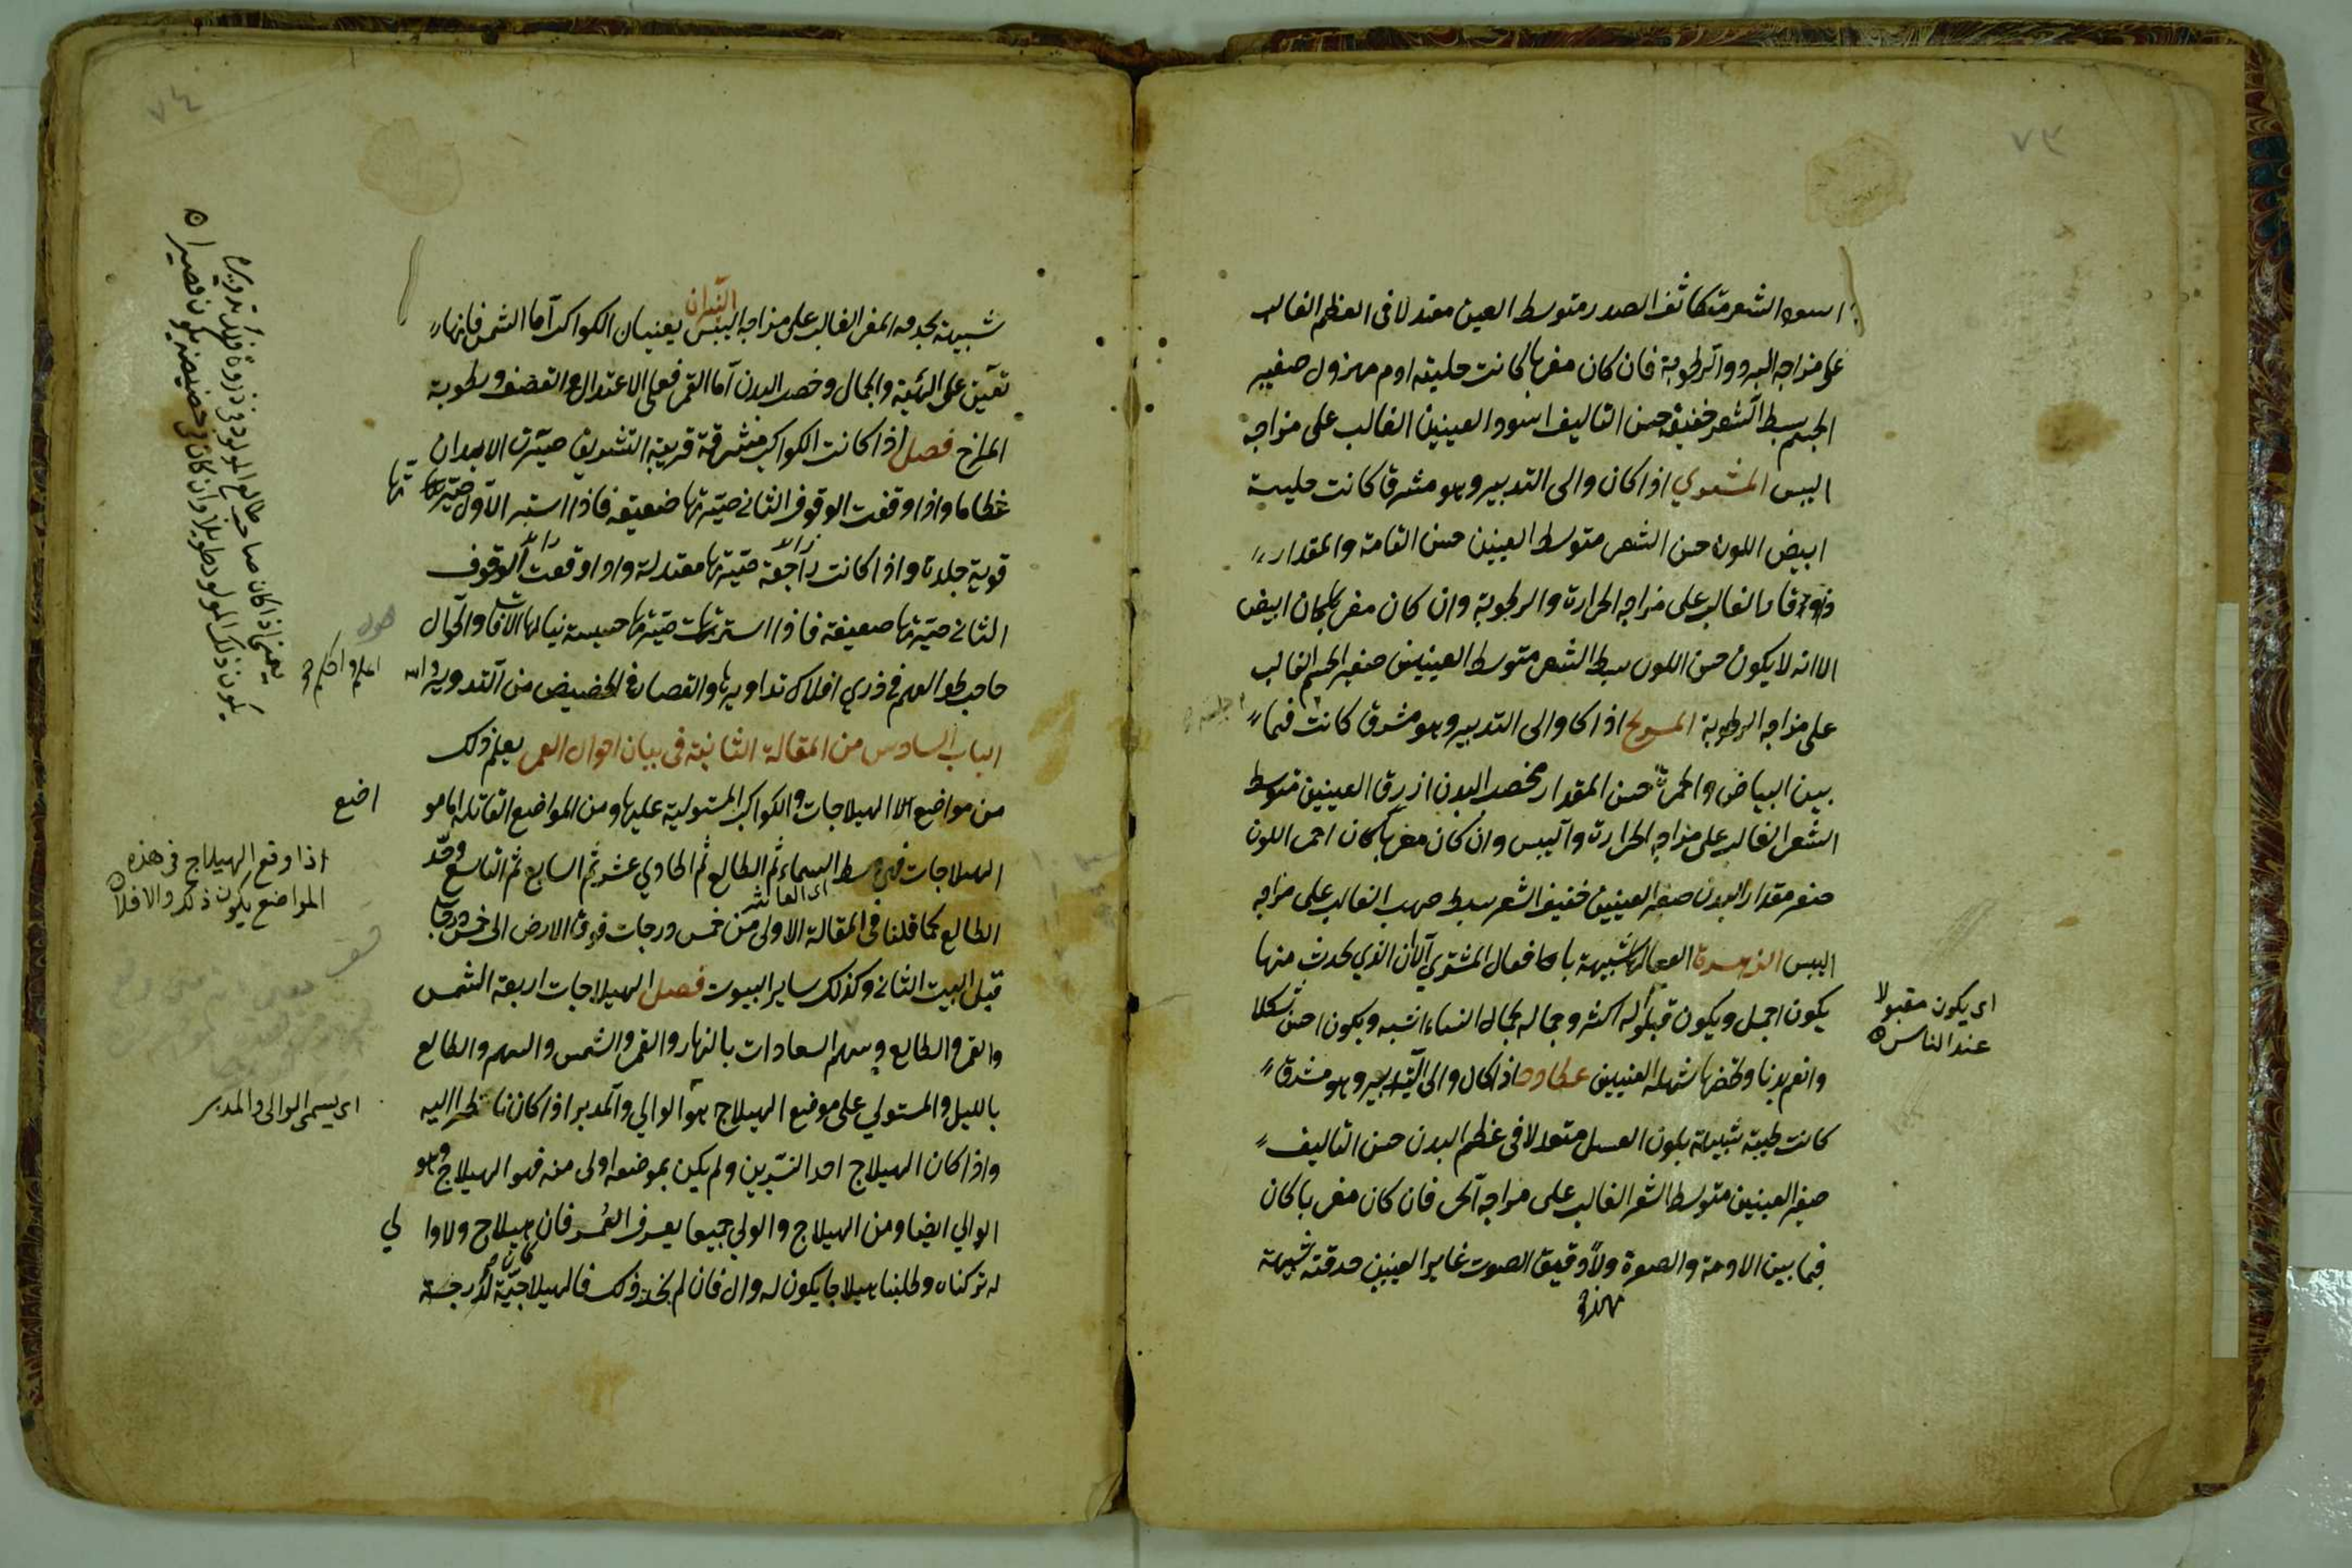 ٧٣
اسود الشعر متكاثف الصدر متوسط العين معتدلا فى العظم الغالب
على مزاجه البرد والرطوبة فان كان مغربا كانت حليته ادم مهزول صغير
الجسم سبط الشعر خفيفه حسن التاليف اسود العينين الغالب على مزاجه
اليبس المشتري اذا كان والى التدبير وهو مشرقا كانت حليته
ابيض اللون حسن الشعر متوسط العينين حسن القامة والمقدار
الغالب على مزاجه الحرارة والرطوبة وان كان مغربا كان ابيض
الا انه لا يكون حسن اللون سبط الشعر متوسط العينين صغير الجسم الغالب
على مزاجه الرطوبة المريخ اذا كا والى التدبير وهو مشرق كانت فيما
بين البياض والحمرة حسن المقدار مخصب البدن ازرق العينين متوسط
الشعر الغالب على مزاجه الحرارة واليبس وان كان مغربا كان احمر اللون
صغير مقدار البدن صغير العينين خفيف الشعر سبط صهب الغالب على مزاجه
اليبس الزهرة افعالها شبيهة بافعال المشتري الا ان الذي يحدث منها
يكون اجمل ويكون قبوله اكثر وجماله بجمال النساء اشبه ويكون احسن شكلا
اى يكون مقبولا
عند الناس
وانعم بدنا شهلة العينين عطارد اذا كان والى التدبير وهو مشرق
كانت طيبة شبيهة بلون العسل معتدلا فى عظم البدن حسن التاليف
صغير العينين متوسط الشعر الغالب على مزاجه الحر فان كان مغربا كان
فيما بين الادمة والصفرة دقيق الصوت غاير العينين حدقته شبيهة
٧٤
النيران
شبيهة بحدقة المعز الغالب على مزاجه اليبس يعينان الكواكب اما الشمس فانها
تعين على الهيئة والجمال وخصب البدن اما القمر فعلى الاعتدال والقضف ورطوبة
المزاج فصل اذا كانت الكواكب مشرقة قريبة التشريق صيرت الابدان
عظاما واذا وقفت الوقوف الثانى صيرتها ضعيفة فاذا استتر الاول صيرتها
قوية جلدة واذا كانت راجعة صيرتها معتدلة واذا وقعت الوقوف
الثانى صيرتها ضعيفة فاذا استترت صيرتها خسيسة ينالها الافات والطوال
صاحب طوالعهم فى ذرى افلاك تداويرها والقصار فى الحضيض من التدوير والله
اعلم واحكم
يعنى اذا كان صاحب طالع المولود فى ذروة فلك تدويره
يكون ذلك المولود طويلا وان كان فى حضيضه يكون قصيرا
الباب السادس من المقالة الثانية فى بيان احوال العمر يعلم ذلك
من مواضع الهيلاجات والكواكب المستولية عليها ومن المواضع القاتلة اما مو
اضع
الهيلاجات فهى وسط السماء ثم الطالع ثم الحادي عشر ثم السابع ثم التاسع وحد
اى العاشر
اذا وقع الهيلاج فى هذه
المواضع يكون ذلك والا فلا
الطالع كما قلنا فى المقالة الاولى من خمس درجات فوق الارض الى خمس درجات
قبل البيت الثانى وكذلك ساير البيوت فصل الهيلاجات اربعة الشمس
والقمر والطالع وسهم السعادات بالنهار والقمر والشمس والسهم والطالع
بالليل والمستولي على موضع الهيلاج هو الوالي والمدبر اذا كان ناظرا اليه
اى يسمى الوالى والمدبر
واذا كان الهيلاج احد النيّرين ولم يكن بموضعه اولى منه فهو الهيلاج وهو
الوالي ايضا ومن الهيلاج والولي جميعا يعرف العمر فان كان هيلاج ولا وا لي
له تركناه وطلبنا هيلاجا يكون له وال فان لم نجد ذلك فالهيلاجيّة لدرجة